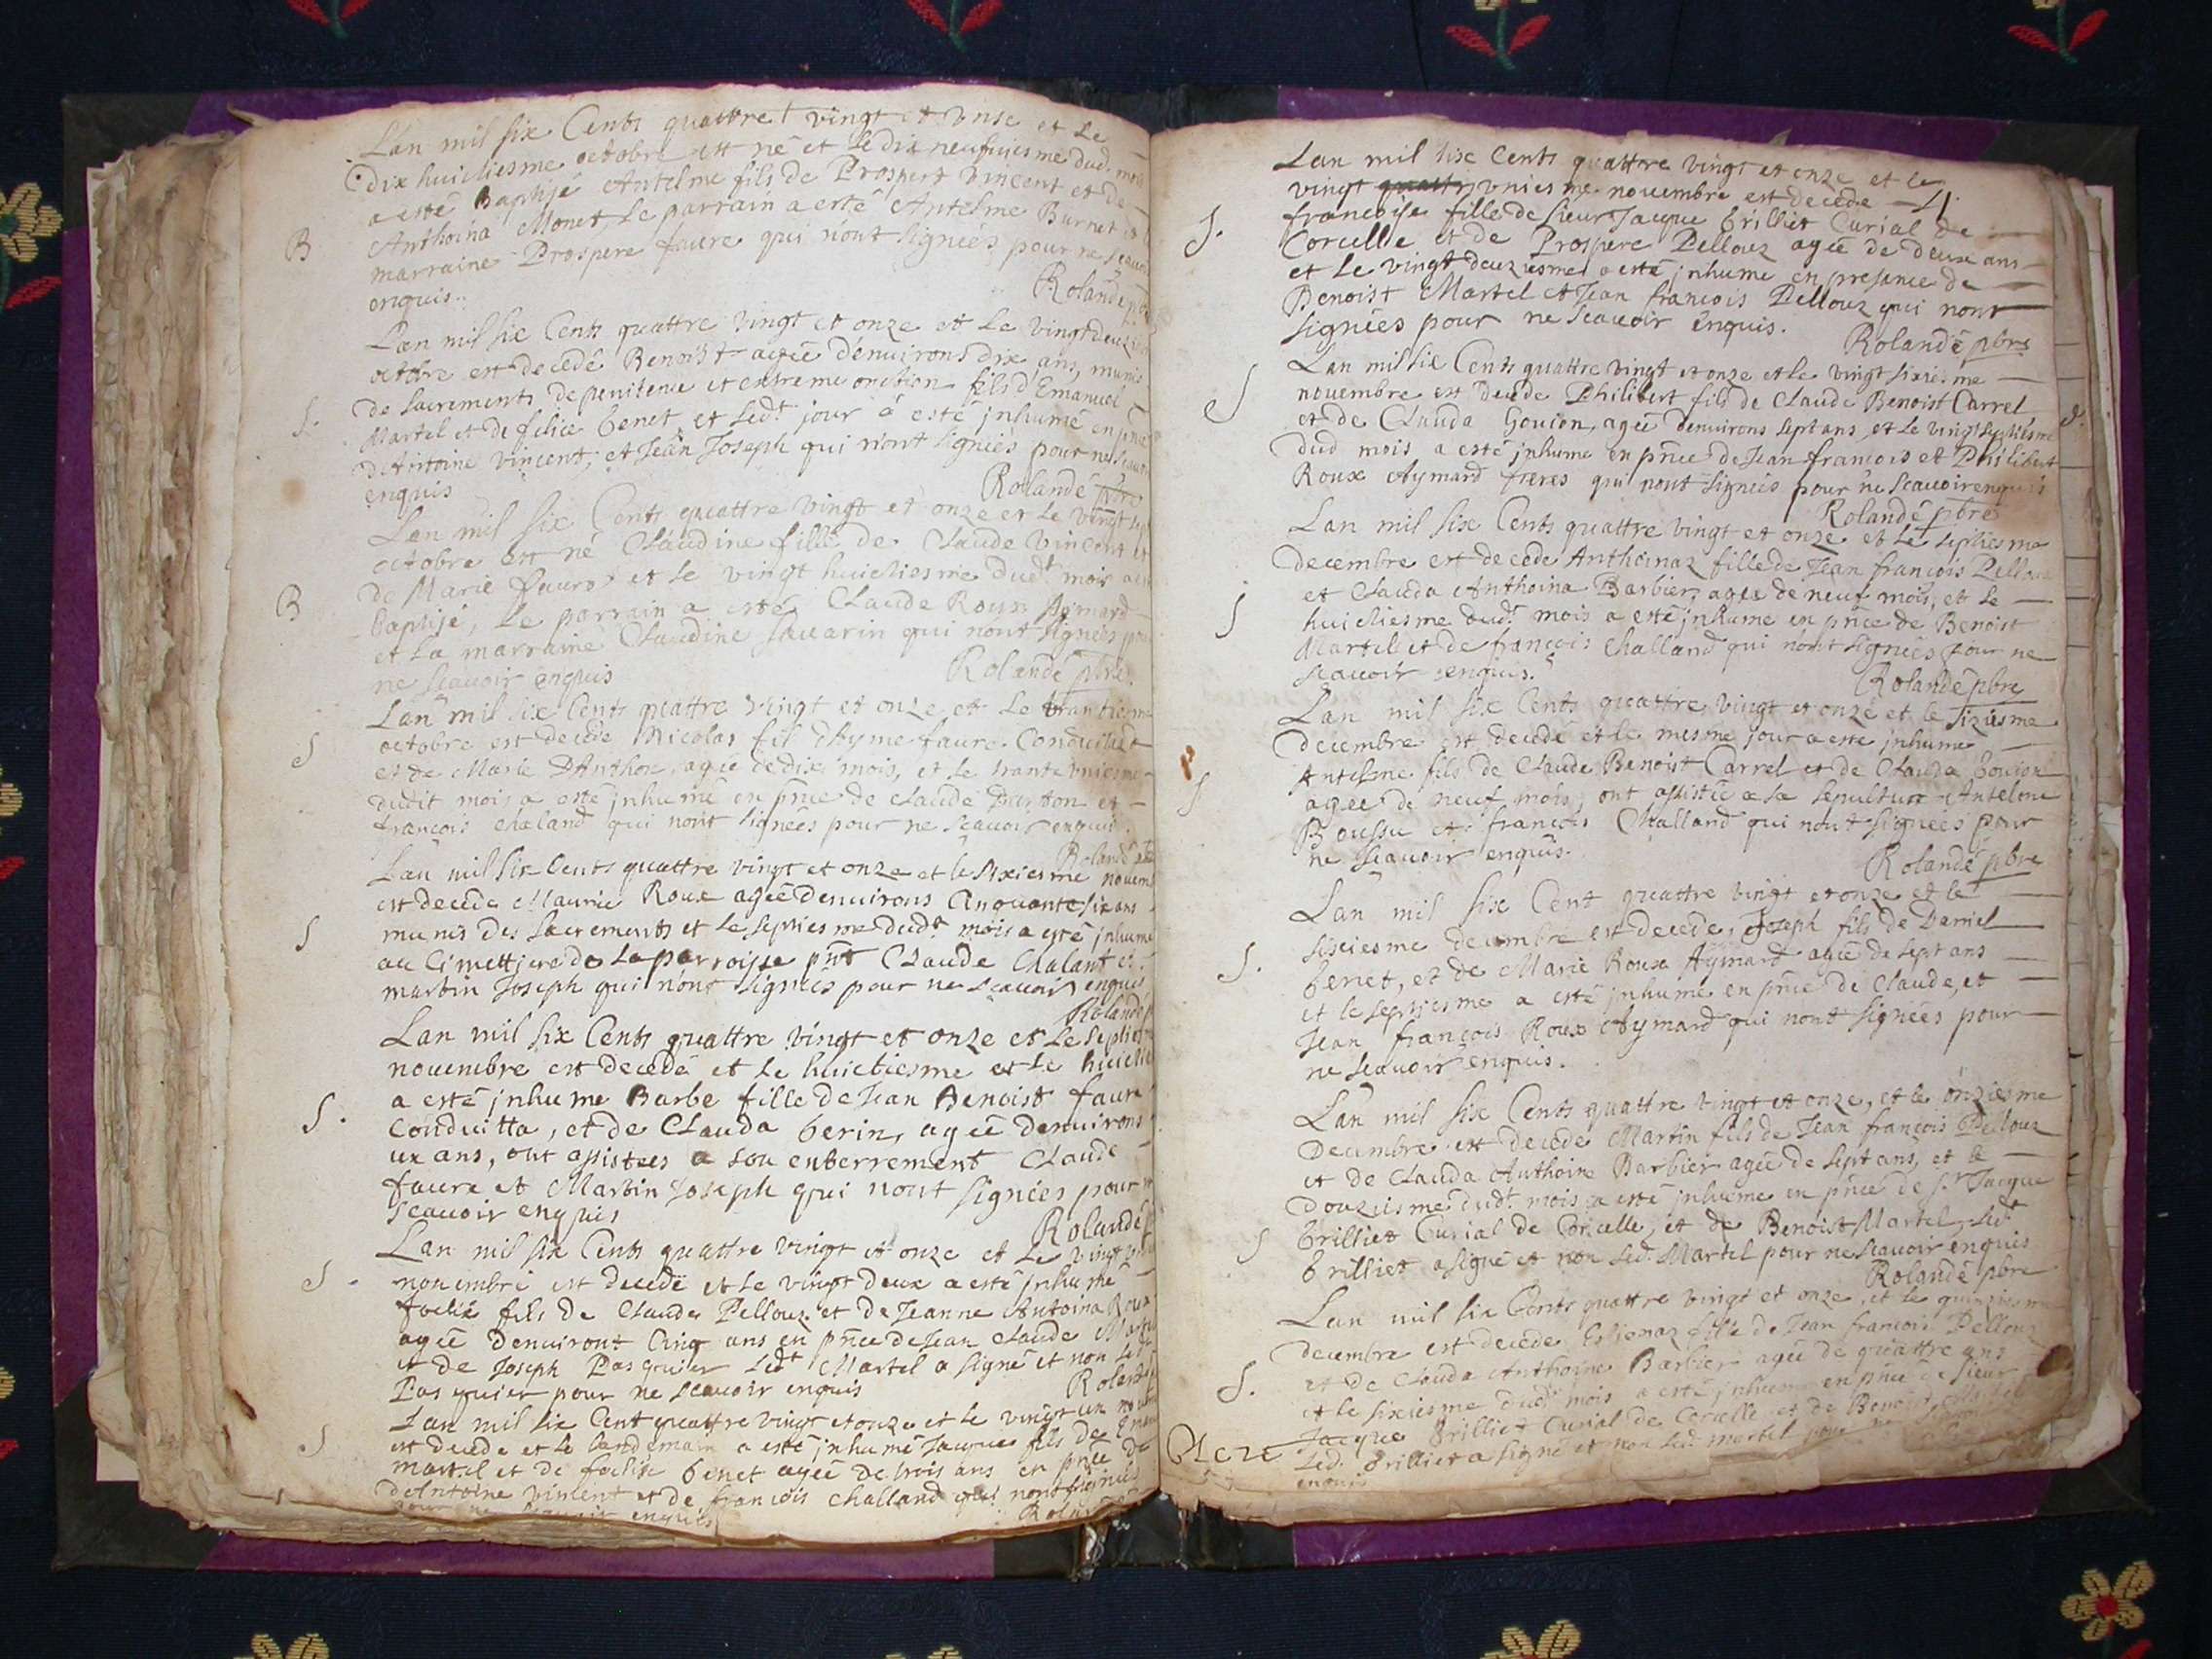 Lan mil six Cents quattre vingt et unse et le
dix huictiesme octobre est né et le dix neufuiesme dud. mois
a esté Baptisé Antelme fils de Prospert Vincent et de
Anthoina Monet, le parrain a esté Antelme Burnet et
B
marraine Prospere faure qui nont signées pour ne scauoir
enquis..
Rolande
Lan mil six Cents quattre vingt et onze et le vingt deuz
octobre est decedé Benoist agée denuirons dix ans, munis
de sacrements de penitence et extreme onction fils d'Emanuel
S.
Martel et de felice benet, et led.t jour à esté jnhumé en pnce
d'Antoine Vincent, et Jean Joseph qui n'ont signées pour ne scauoir
enquis
Rolandé pbre
Lan mil six Cents quattre vingt et onze et le vingt sept
octobre est né Claudine fille de Claude Vincent et
de Marie faure et le vingt huictiesme dud.t mois a
B
baptisé, le parrain a esté Claude Roux Aymard
et la marraine Claudine sauarin qui nont signées pour
ne scauoir enquis
Rolandé pbre.
Lan mil six Cents quattre vingt et onze et le trantiesme
S
octobre est decedé Nicolas fil dhyme faure Conduitte
et de Marie D'Anthon, agée de dix mois, et le trante vniesme
dudit mois a esté jnhumé en pnce de Claude et
francois chaland qui nont signées pour ne scauoir enquis.
Rolandé
Lan mil six Cents quattre vingt et onze et le sixiesme nouem
est decedé Maurice Roux agée denuirons Cinquante six ans
S
munis des sacrements et le septiesme dud.t mois a esté jnhumé
au Cimettiere de la parroisse pnt Claude Chalant et
martin Joseph qui n'ont signées pour ne scauoir enquis
Rolandé
Lan mil six Cents quattre vingt et onze et le septies
nouembre est decedé et le huictiesme et le huictie
S.
a esté jnhumé Barbe fille de Jean Benoist faure
Conduitta, et de Clauda berin, agée denuirons
ux ans, ont assistees a son enterrement Claude
faure et Martin Joseph qui nont signées pour
scauoir enquis
Rolandé
Lan mil six Cents quattre vingt et onze et le vingt
S.
nouembre est decedé et le vingt deux a esté jnhumé
foelix fils de Claude Pellouz et de Jeanne Antoina Roux
agée denuiront Cinq ans en pnce de Jean Claude Mar
et de Joseph Pasquier led.t Martel a signé et non led
Pasquier pour ne scauoir enquis
Rolandé
Lan mil six Cent quattre vingt et onze et le vingt un
S
est decedé et le landemain a esté jnhumé Jacque fils de
martel et de foelix benet agée de trois ans en pnce de
d'Antoine Vincent et de francois challand qui nont signées
enquis
Lan mil six Cents quattre vingt et onze et le
vingt vniesme nouembre est decedé
S.
francoise fille de sieur Jacque brilliet Curial de
Corcelle et de Prospere Pellouz agée de deux ans
et le vingt deuziesme a esté jnhume en presance de
Benoist Martel et Jean francois Pellouz qui nont
signées pour ne scauoir enquis.
Rolandé pbre
Lan mil six Cents quattre vingt et onze et le vingt sixiesme
S
nouembre est decedé Philibert fils de Claude Benoist Carrel
et de Clauda Goujon, agée denuirons sept ans et le vingt septiesme
dud mois a esté jnhume en pnce de Jean francois et Philibert
Roux Aymard freres qui nont signées pour ne scauoir enquis
Rolandé pbre
Lan mil six Cents quattre vingt et onze et le septiesme
decembre est decedé Anthoinaz fille de Jean francois Pellouz
et Clauda Anthoina Barbier, agée de neuf mois, et le
S
huictiesme dud.t mois a esté jnhume en pnce de Benoist
Martel et de francois Challand qui n'ont signées pour ne
scauoir enquis.
Rolandé pbre
Lan mil six Cents quattre vingt et onze et le siziesme
decembre est decedé et le mesme jour a esté jnhumé
S
Antelme fils de Claude Benoist Carrel et de Clauda Goujon
agée de neuf mois, ont assistée a sa sepulture Antelme
Boussu et francois Challand qui nont signées pour
ne scauoir enquis.
Rolandé pbre
Lan mil six Cent quattre vingt et onze et le
sixiesme decembre est decedé, Joseph fils de Daniel
S.
benet, et de Marie Roux Aymard agée de sept ans
et le septiesme a esté jnhumé en pnce de Claude, et
Jean francois Roux Aymard qui nont signées pour
ne scauoir enquis.
Lan mil six Cents quattre vingt et onze, et le onziesme
Decembre est decedé Martin fils de Jean francois Pellouz
et de Clauda Anthoine Barbier agée de sept ans, et le
douziesme dud.t mois a esté jnhume en pnce de s.r Jacque
S
brilliet Curial de Corcelle, et de Benoist Martel, led.t
brilliet a signé et non led. Martel pour ne scauoir enquis
Rolandé pbre
Lan mil six Cents quattre vingt et onze, et le quinziesme
decembre est decedé Estienaz fille de Jean francois Pellouz
et de Clauda Anthoine Barbier agée de quattre ans
S.
et le sixiesme dud.t mois a esté jnhume en pnce de sieur
Jacque Brilliet Curial de Corcelle et de Benoist Martel
led. brilliet a signé et non led. martel pour ne
enquis